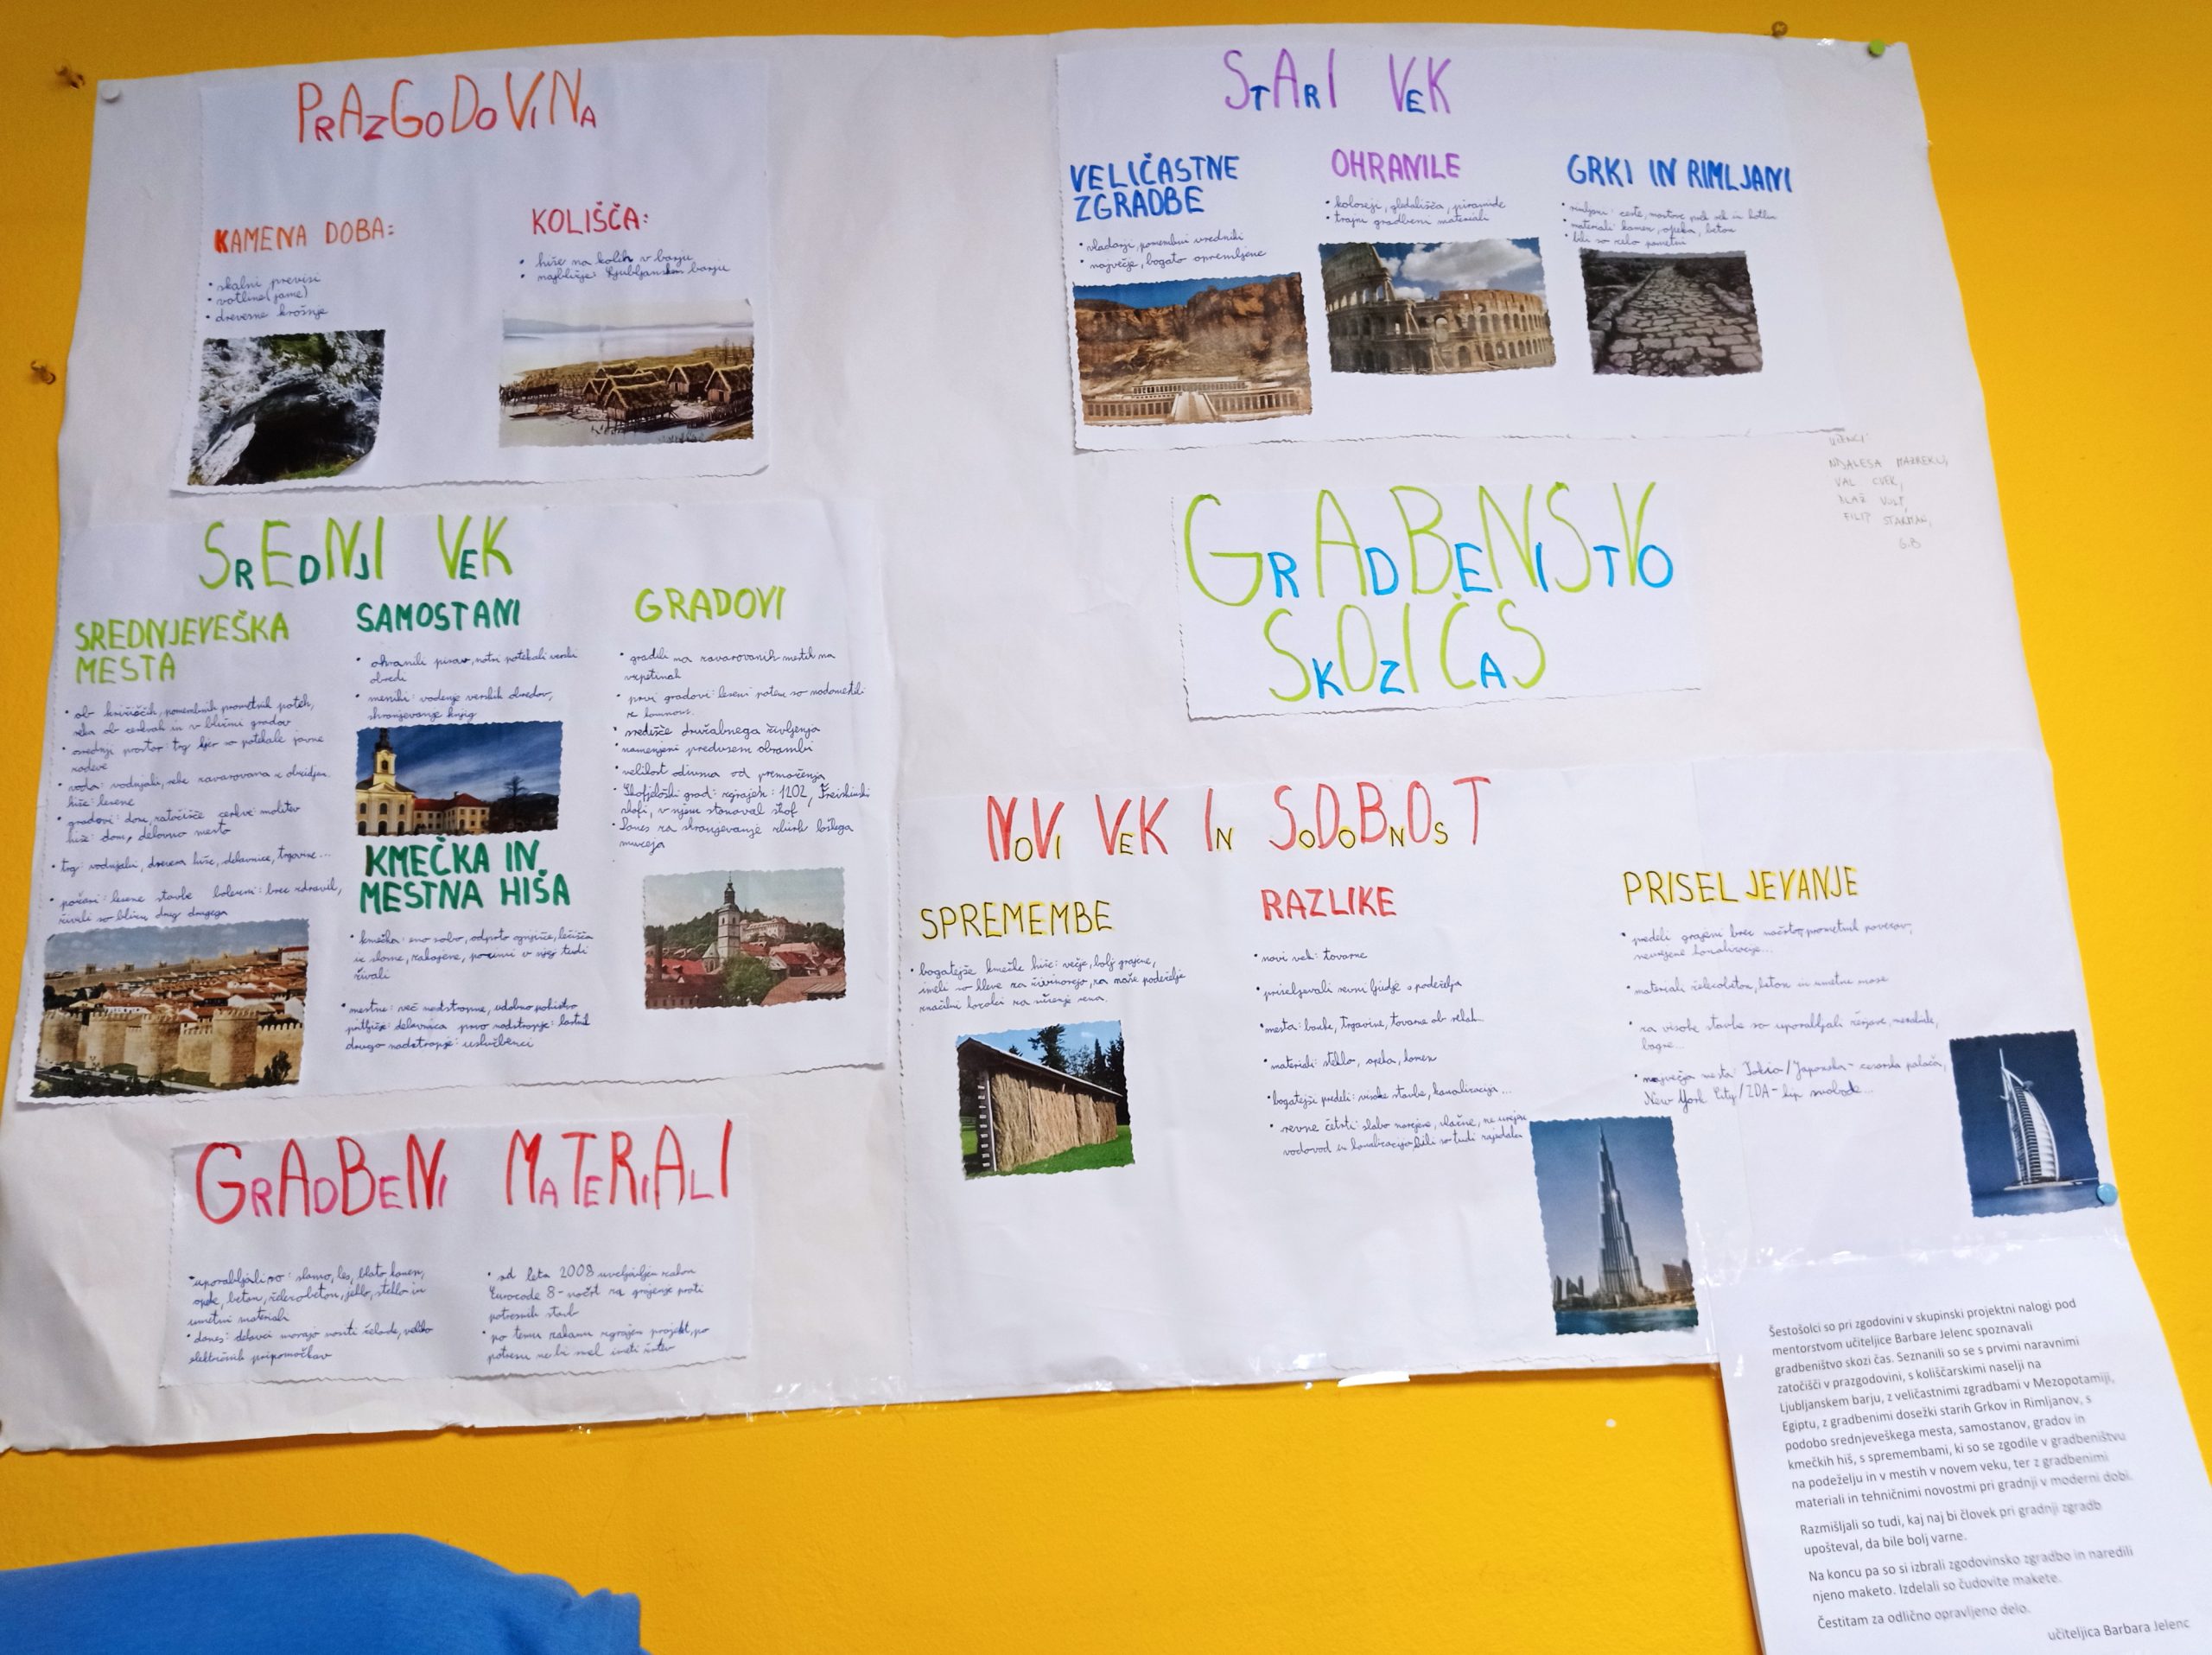 PRAZGODOVINA
KAMENA DOBA:
• skalni previsi
• votline (jame)
• drevesne krošnje
KOLIŠČA:
• hiše na kolih v barju
• najbližje: Ljubljanskem barju
STARI VEK
VELIČASTNE
ZGRADBE
• vladarji, pomembni uredniki
• največje, bogato opremljene
OHRANILE
• koloseji, gledališča, piramide
• trajni gradbeni materiali
GRKI IN RIMLJANI
• rimljani: ceste, mostove, rek in
• materiali kamen, opeka, beton
• bili so zelo pametni
UČENCI:
VAL CVEK,
6.B
GRADBENIŠTVO
SKOZI ČAS
SREDNJI VEK
SREDNJEVEŠKA
MESTA
• ob križiščih, pomembnih prometnih poteh,
ob cerkvah in v bližini gradov
• osrednji prostor: trg kjer so potekale javne
hiše: lesene
• gradovi: dom, zatočišče cerkve: molitev
hiše: dom, delovno mesto
• trg: vodnjaki, lesena hiše, delavnice, trgovine...
• požari: lesene stavbe bolezni: brez zdravil,
živeli so blizu drug drugega
SAMOSTANI
• ohranili pisavo, notri potekali verski
obredi
• menihi: vodenje verskih obredov,
shranjevanje knjig
KMEČKA IN
MESTNA HIŠA
• kmečka: eno sobo, odprto ognjišče, ležišča
iz slame, zakajene, pozimi v njej tudi
živali
• mestne: več nadstropne, udobno pohištvo
pritličje: delavnica prvo nadstropje: lastnik
drugo nadstropje: uslužbenci
GRADOVI
• gradili na zavarovanih mestih na
vzpetinah
• prvi gradovi: leseni potem so nadomestili
• središče družabnega življenja
• namenjeni predvsem obrambi
• velikost odvisna od premoženja
• Škofjeloški grad: zgrajen: 1202, Freisinški
škofi, v njem stanoval škof
• Danes za shranjevanje zbirk loškega
muzeja
NOVI VEK IN SODOBNOST
SPREMEMBE
• bogatejše kmečke hiše: večje, bolj grajene,
imeli so hleve za živinorejo, za naše podeželje
značilni kozolci za sušenje sena.
RAZLIKE
• novi vek: tovarne
• priseljevali revni ljudje s podeželja
• mesta: banke, trgovine, tovarne ob rekah...
• materiali: steklo, opeka, kamen
• bogatejši predeli: visoke stavbe, kanalizacija...
• revne četrti: slabo narejene, vlažne, ne urejen
vodovod in kanalizacija, bili so tudi
PRISELJEVANJE
• predeli grajeni brez načrtov, prometnih povezav,
neurejene kanalizacije...
• materiali železobeton, beton in umetne mase
• za visoke stavbe so uporabljali žerjave,
bagre...
• največja mesta: Tokio/Japonska - cesarska palača,
New York City/ZDA - kip svobode...
GRADBENI MATERIALI
• uporabljali so: slamo, les, blato kamen,
opeke, beton, železobeton, jeklo, steklo in
umetni materiali
• danes: delavci morajo nositi čelade, veliko
električnih pripomočkov
• od leta 2008 uveljavljen zakon
Eurocode 8 - načrt za grajenje proti
potresnih stavb
• po temu zakonu zgrajen projekt, po
potresu ne bi smel imeti žrtev
Šestošolci so pri zgodovini v skupinski projektni nalogi pod
mentorstvom učiteljice Barbare Jelenc spoznavali
gradbeništvo skozi čas. Seznanili so se s prvimi naravnimi
zatočišči v prazgodovini, s koliščarskimi naselji na
Ljubljanskem barju, z veličastnimi zgradbami v Mezopotamiji,
Egiptu, z gradbenimi dosežki starih Grkov in Rimljanov, s
podobo srednjeveškega mesta, samostanov, gradov in
kmečkih hiš, s spremembami, ki so se zgodile v gradbeništvu
na podeželju in v mestih v novem veku, ter z gradbenimi
materiali in tehničnimi novostmi pri gradnji v moderni dobi.
Razmišljali so tudi, kaj naj bi človek pri gradnji zgradb
upošteval, da bile bolj varne.
Na koncu pa so si izbrali zgodovinsko zgradbo in naredili
njeno maketo. Izdelali so čudovite makete.
Čestitam za odlično opravljeno delo.
učiteljica Barbara Jelenc